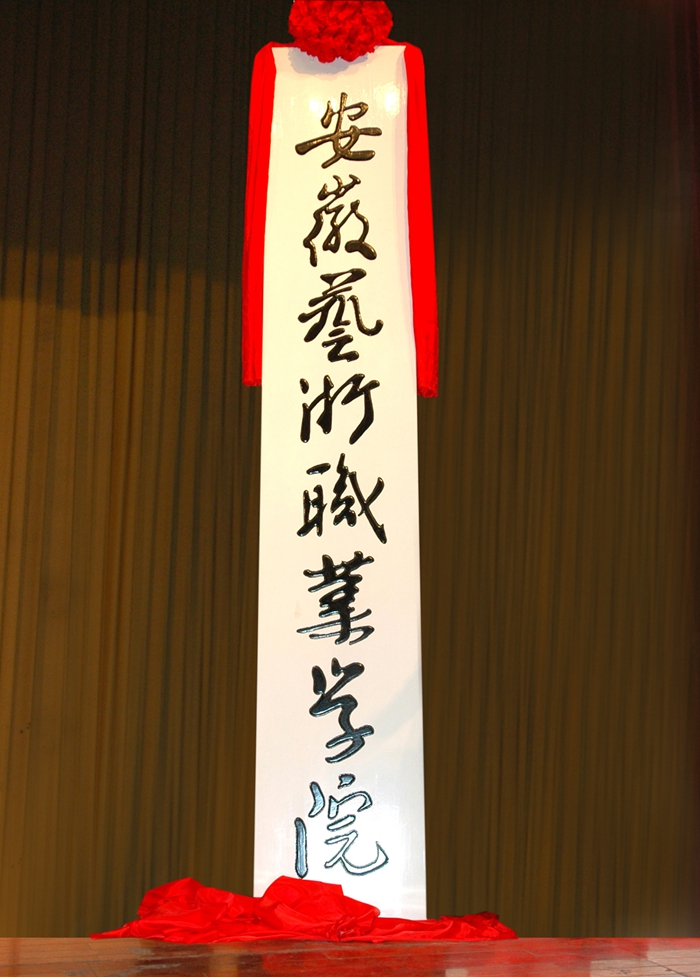 安徽藝術職業学院